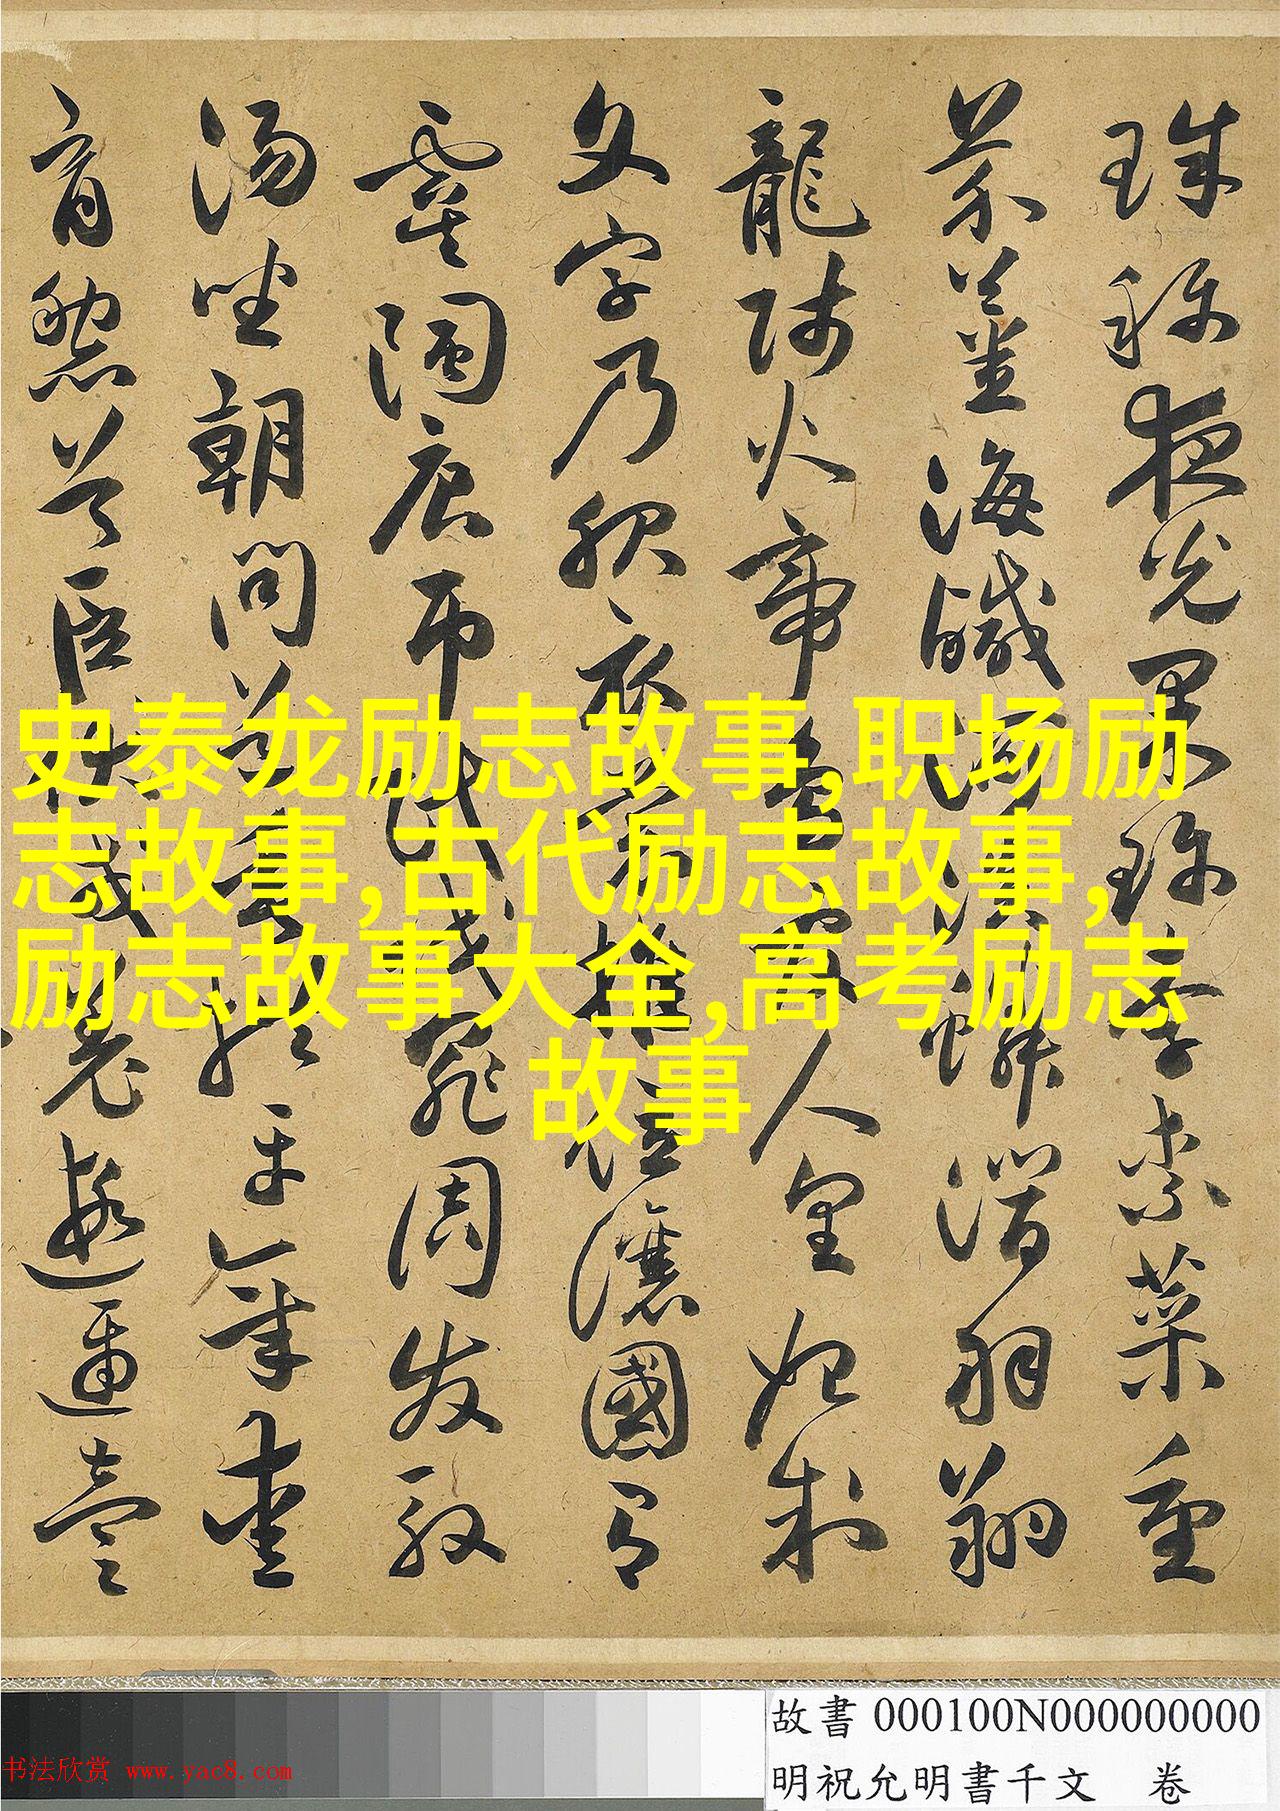 珠稱夜光果珍李柰菜重
芥薑海鹹河淡鱗潛羽翔
龍師火帝鳥官人皇始制
文字乃服衣裳推位讓國有
虞陶唐弔民伐罪周發殷
湯坐朝問道垂拱平章愛
育黎首臣伏戎羌遐邇壹
史泰龙励志故事,职场励
志故事,古代励志故事,
励志故事大全,高考励志
故事
故書 000100N000000000
明祝允明書千文 卷
书法欣赏 www.yac8.com